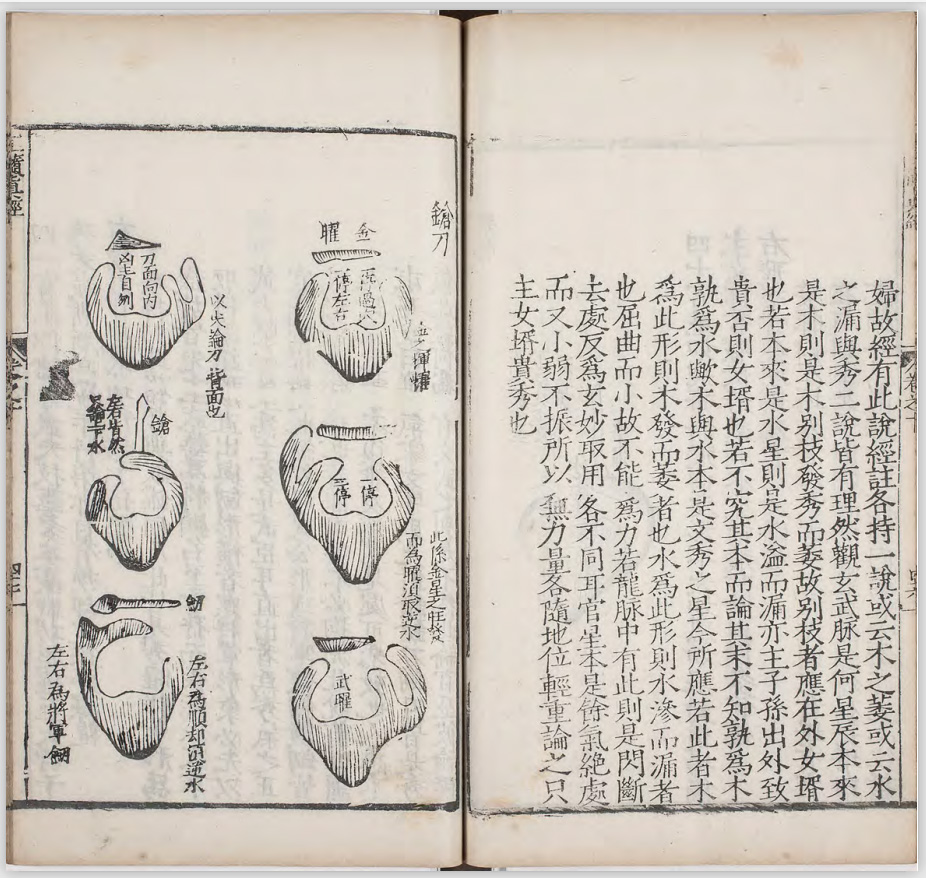 婦故經有此說經註各持一說或云木之萎或云水
之漏與秀二說皆有理然觀玄武脉是何星辰本來
是木則是木别枝發秀而萎故别枝者應在外女壻
也若本來是水星則是水溢而漏亦主子孫出外致
貴否則女壻也若不究其本而論其末不知孰爲木
孰爲水歟木與水本是文秀之星今所應若此者木
爲此形則木發而萎者也水爲此形則水滲而漏者
也屈曲而小故不能爲力若龍脉中有此則是閃斷
去處反爲玄妙取用各不同耳官星本是餘氣絶處
而又小弱不振所以無力量各隨地位輕重論之只
主女壻貴秀也
鎗刀
金
曜
停左右
一停
一停
此係金星之旺發
而為曜須取逆水
武曜
刀面向内
凶主自刎
以尖論刀背面也
鎗
左右皆然
左右為順却須逆水
左右為將軍劒